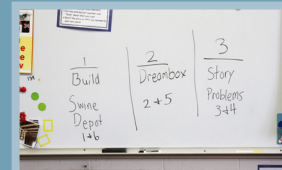 1
Build
Swine
Depot
1+6
2
Dreambox
2+5
3
Story
Problems
3+4